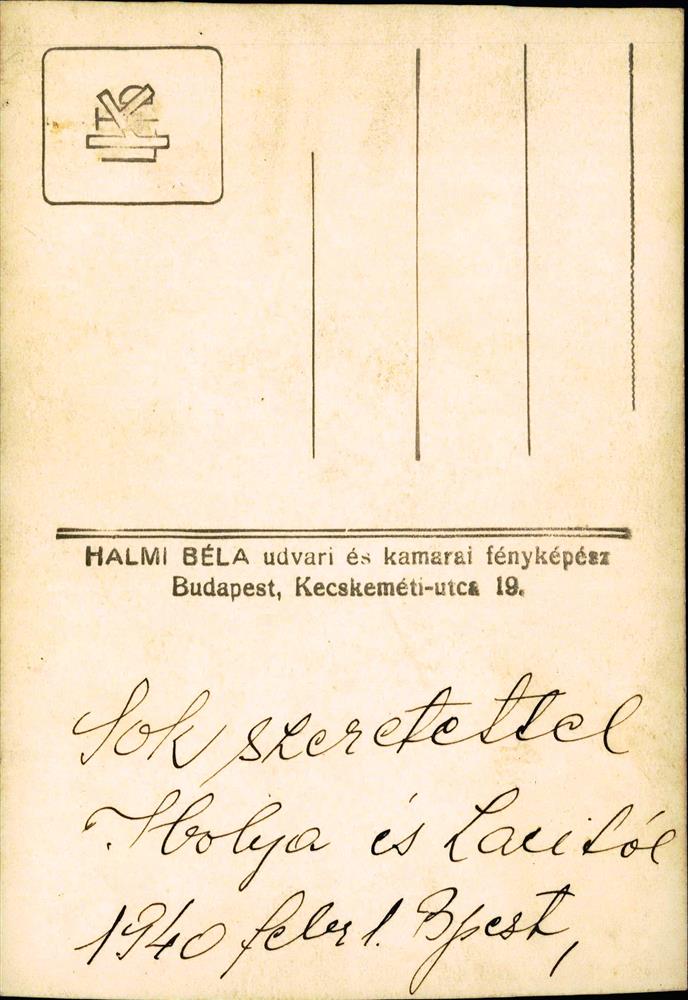 HALMI BÉLA udvari és kamarai fényképész
Budapest, Kecskeméti-utca 19.
Sok szeretettel
Ibolya és Lacitól
1940 febr 1. Bpest,